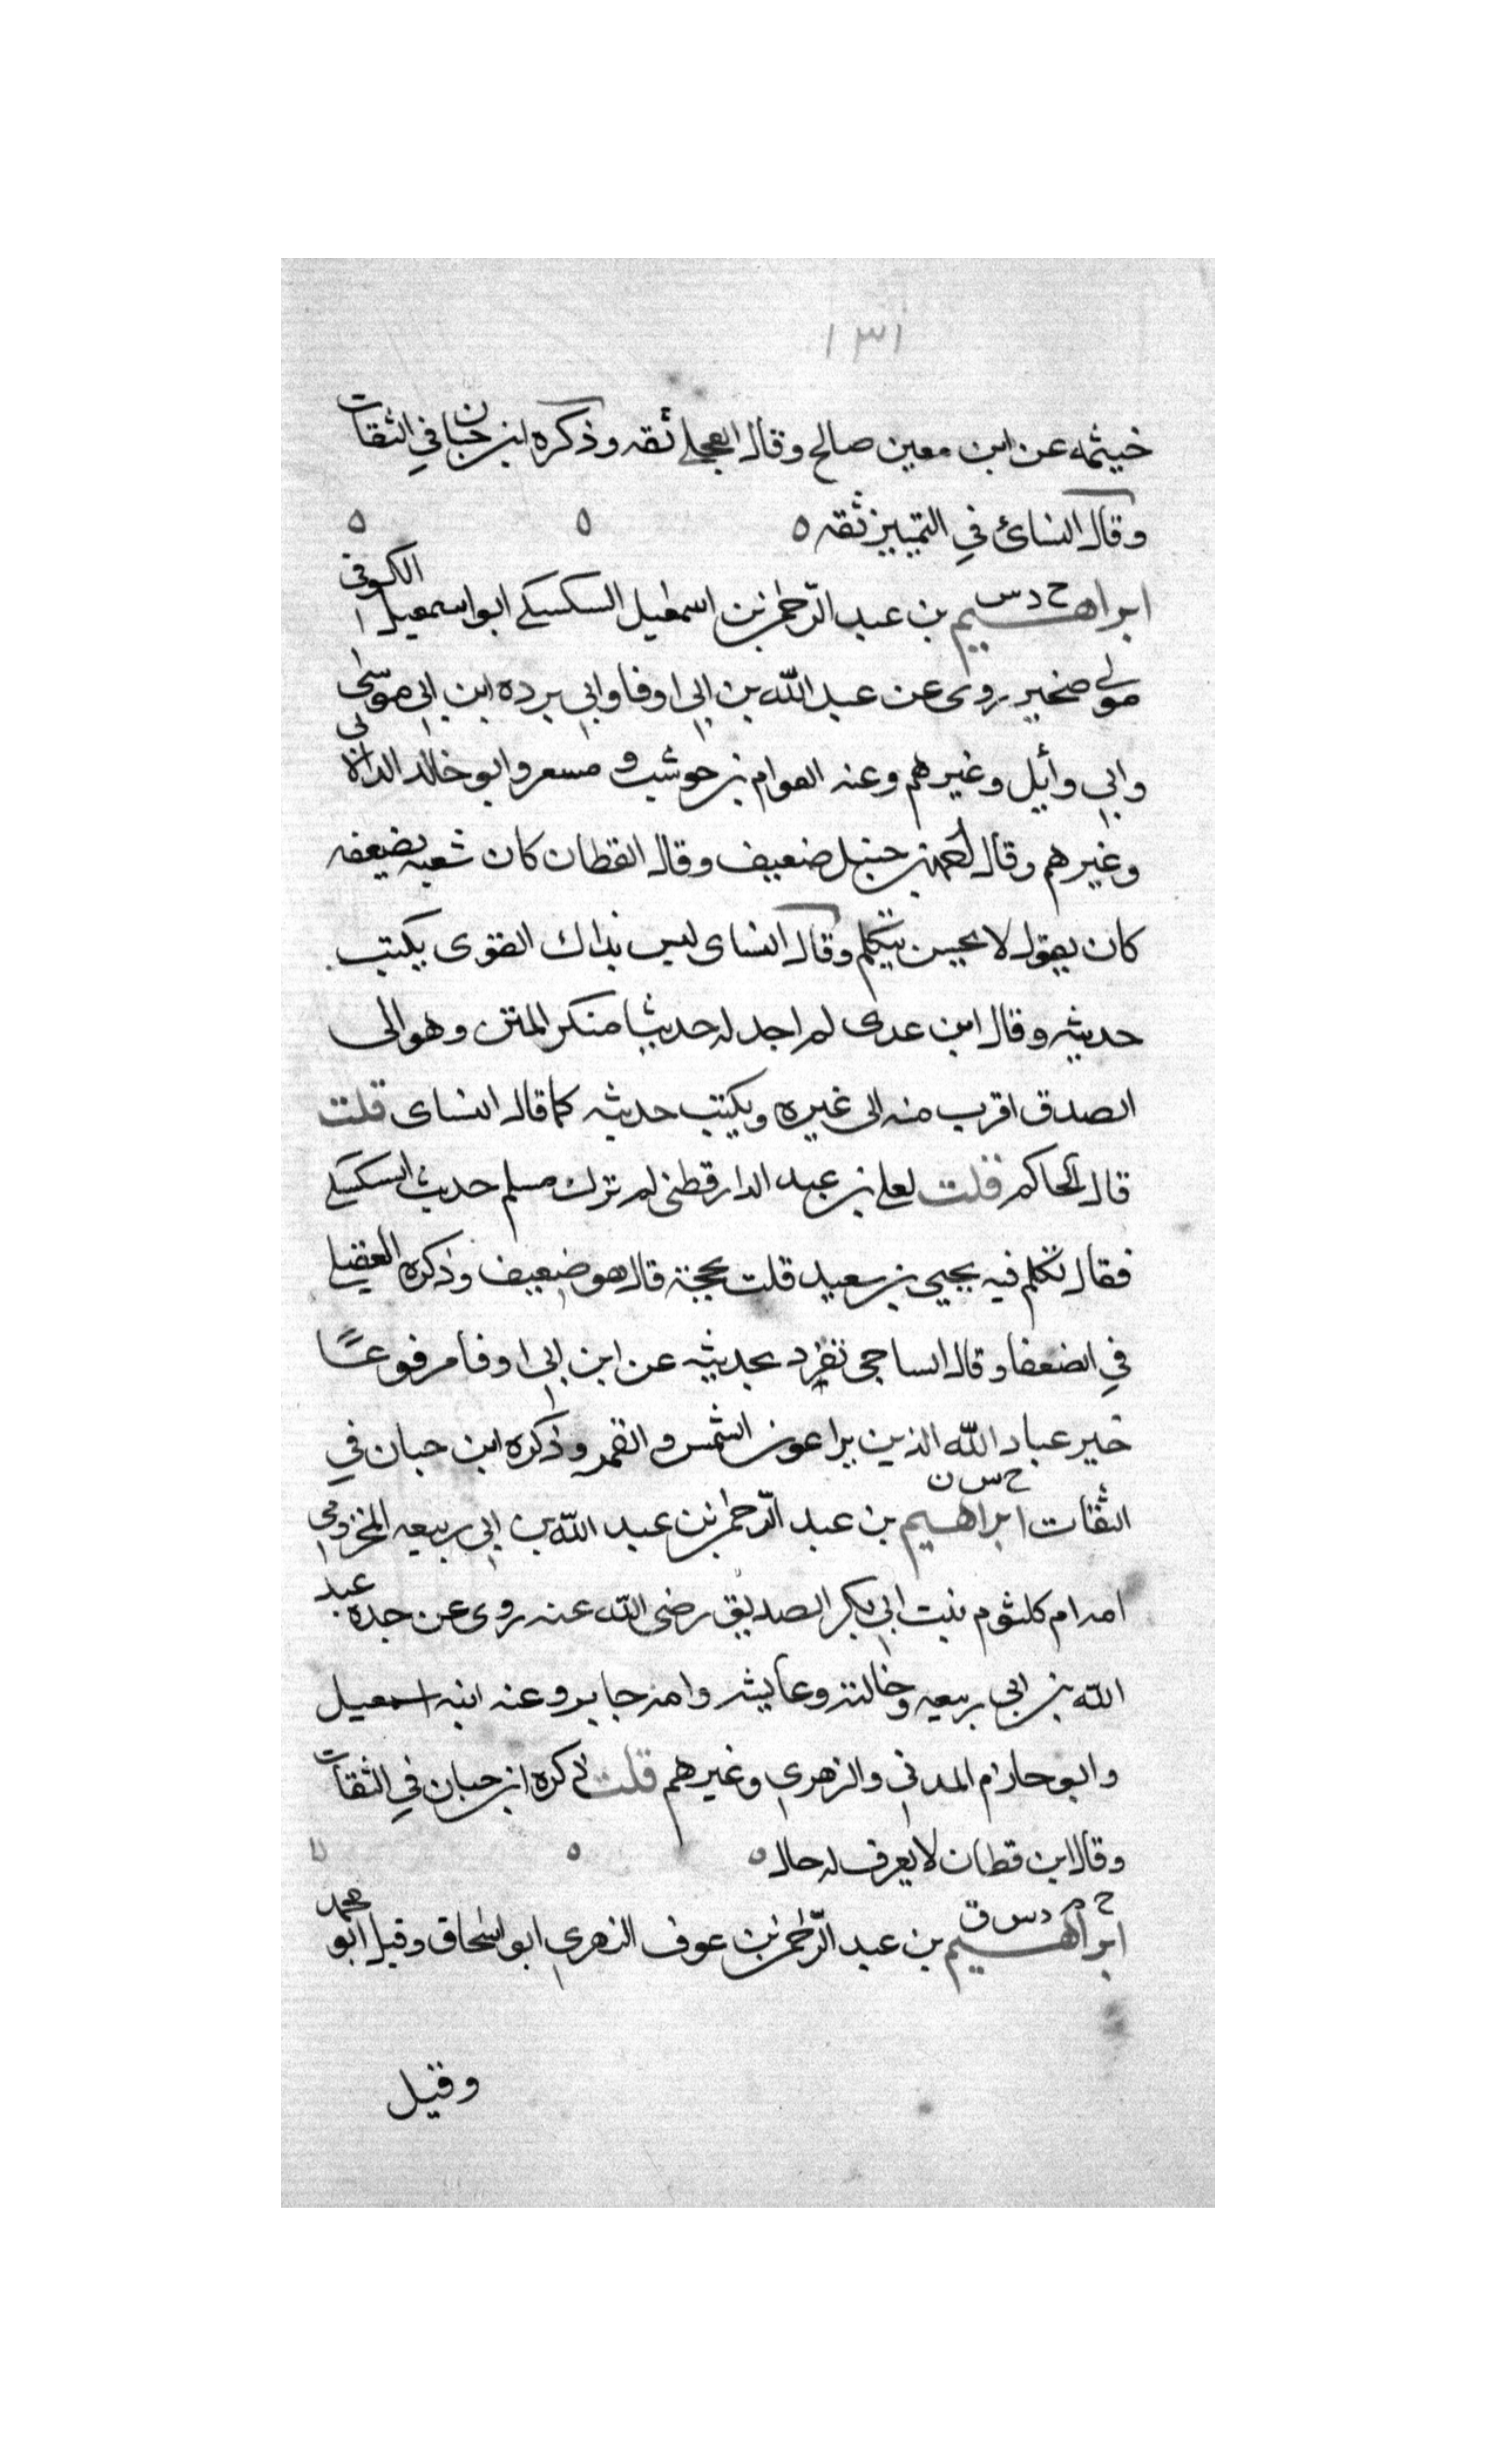 ١٣١
خيثمه عن ابن معين صالح وقال العجلي ثقه وذكره ابن حبان في الثقات
وقال النسائ في التمييز ثقه ه ه ه
ابراهيم بن عبد الرحمن بن اسمعيل السكسكي ابو اسمعيل الكوفي
خ د س
مولى صخير روى عن عبد الله بن ابي اوفا وابي برده ابن ابي موسى
وابي وأيل وغيرهم وعنه العوام بن حوشب و مسعر وابو خالد الدالاني
وغيرهم وقال احمد بن حنبل ضعيف وقال القطان كان شعبه يضعفه
كان يقول لا يحسن يتكلم وقال النساى ليس بذاك القوى يكتب
حديثه وقال ابن عدى لم اجد له حديثا منكر المتن وهو الى
الصدق اقرب منه الى غيره ويكتب حديثه كما قال النساى قلت
قال الحاكم قلت لعلي بن عبد الدارقطنى لم ترك مسلم حديث السكسكي
فقال تكلم فيه يحيى بن سعيد قلت بحجة قال هو ضعيف وذكره العقيلي
في الضعفا وقال الساجى تفرد بحديثه عن ابن ابي اوفا مرفوعًا
خير عباد الله الذين يراعون الشمس و القمر وذكره ابن حبان في
خ س ق
الثقات ابراهيم بن عبد الرحمن بن عبد الله بن ابي ربيعه المخزومي
امه ام كلثوم بنت ابي بكر الصديق رضى الله عنه روى عن جده عبد
الله بن ابي ربيعه وخالته وعايشه وامه جابر وعنه ابنه اسمعيل
وابو حازم المدني والزهري وغيرهم قلت ذكره ابن حبان في الثقات
وقال ابن قطان لا يعرف له حال ه ه ه
خ م د س ق
ابراهيم بن عبد الرحمن بن عوف الزهري ابو اسحاق وقيل ابو محمد
وقيل